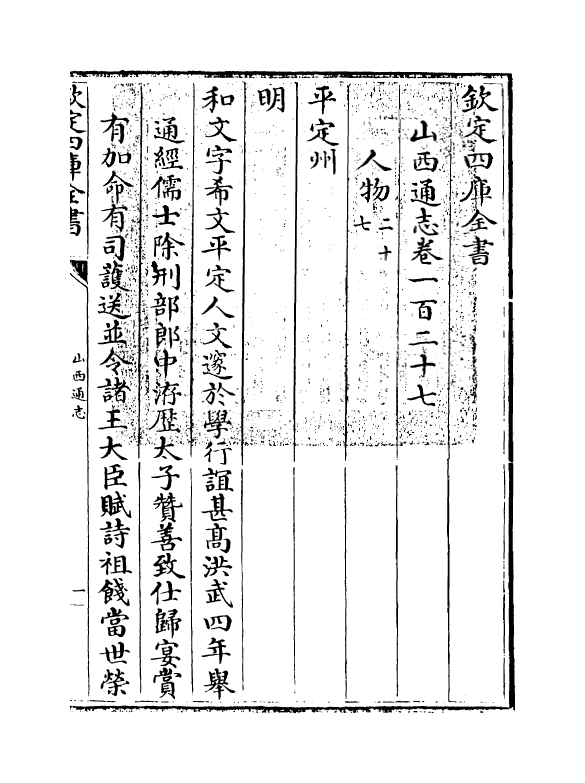 欽定四庫全書
山西通志卷一百二十七
人物二十七
平定州
明
和文字希文平定人文邃於學行誼甚髙洪武四年舉
通經儒士除刑部郎中洊歴太子贊善致仕歸宴賞
有加命有司護送並令諸王大臣賦詩祖餞當世榮
欽定四庫全書
山西通志
一